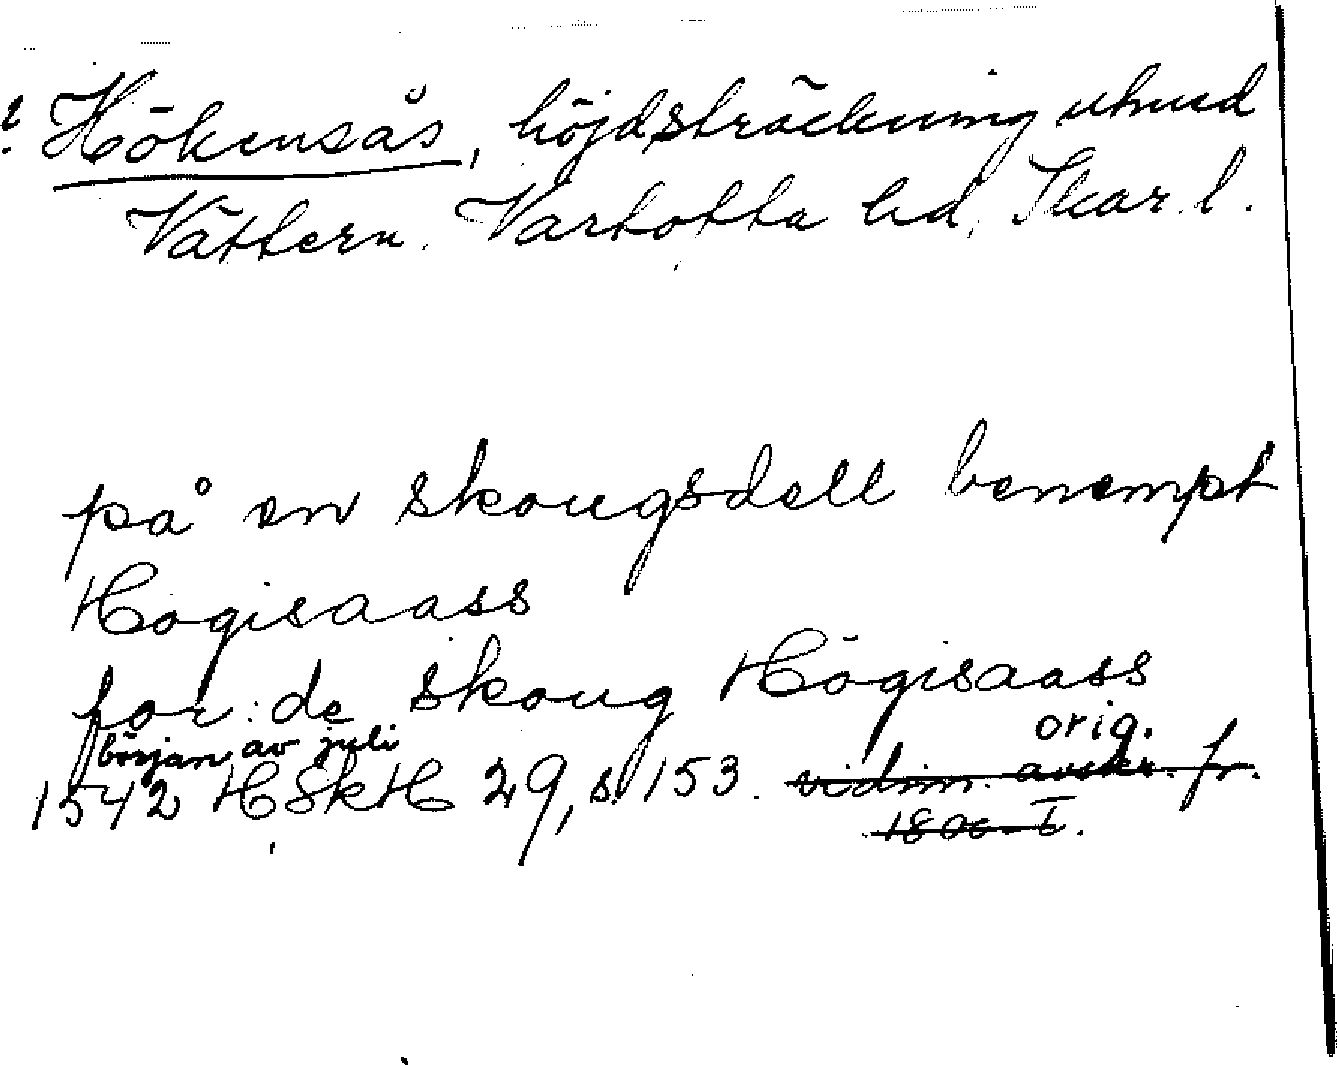 ? Hökensås, höjdsträckning utmed
Vättern. Vartofta hd, Skar. l.
på en skougsdell benempt
Hogisaass
for: de skoug Högisaass
början av juli orig.
1542 HSkH 29, s. 153. vidim. avskr. fr.
1800-t.